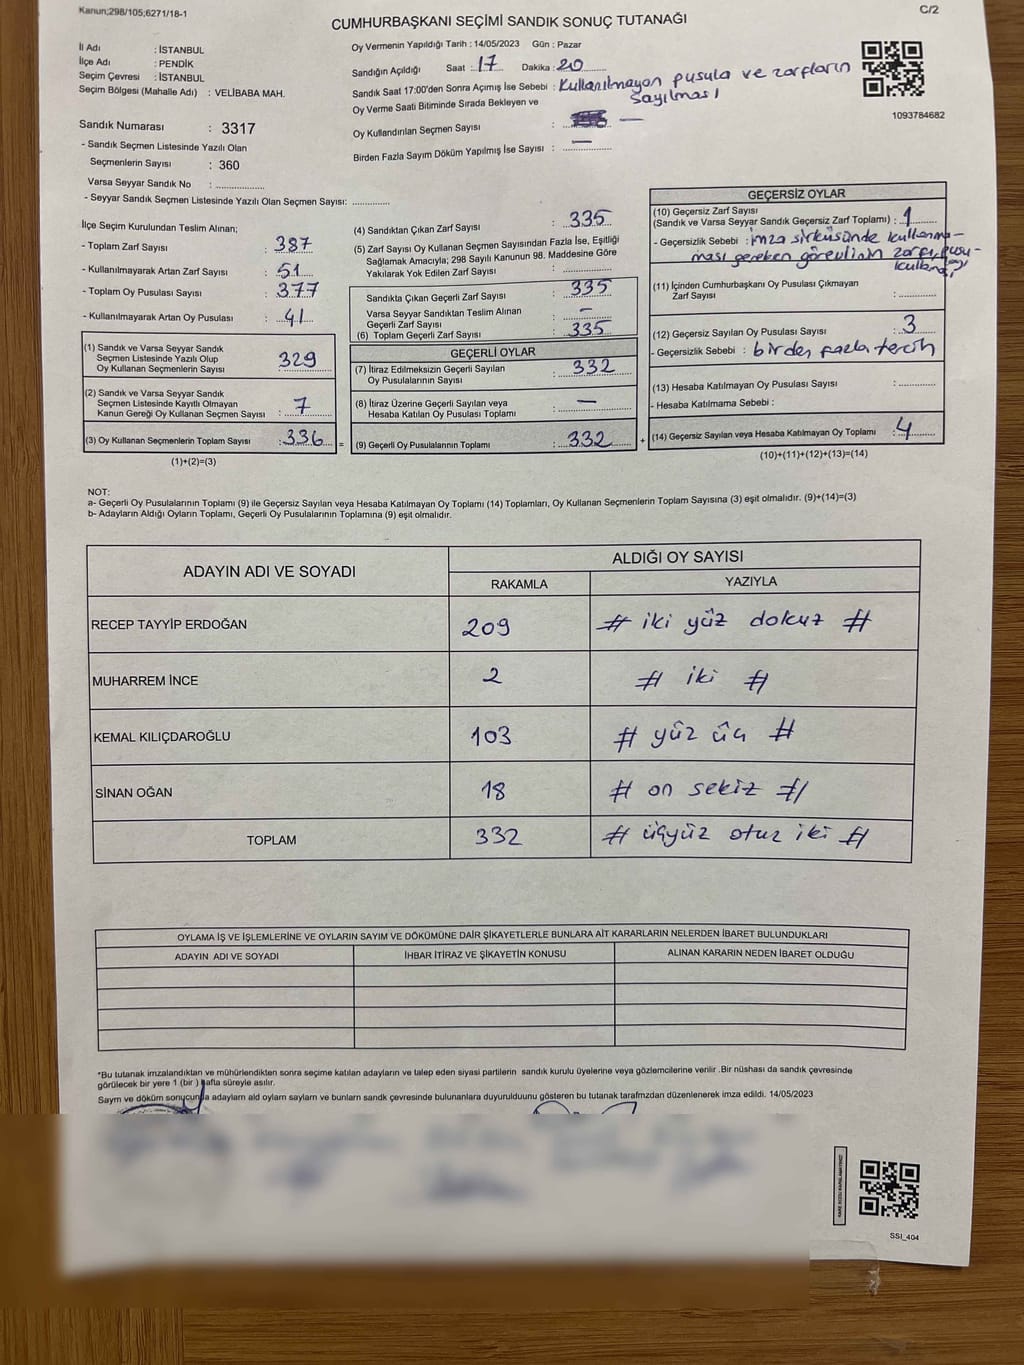 Kanun;298/105;6271/18-1
C/2
CUMHURBAŞKANI SEÇİMİ SANDIK SONUÇ TUTANAĞI
İl Adı : İSTANBUL
İlçe Adı : PENDİK
Seçim Çevresi : İSTANBUL
Seçim Bölgesi (Mahalle Adı) : VELİBABA MAH.
Oy Vermenin Yapıldığı Tarih : 14/05/2023 Gün : Pazar
Sandığın Açıldığı Saat : 17 Dakika : 20
Sandık Saat 17:00'den Sonra Açımış İse Sebebi : Kullanılmayan pusula ve zarfların
sayılması
Oy Verme Saati Bitiminde Sırada Bekleyen ve
Oy Kullandırılan Seçmen Sayısı : —
Birden Fazla Sayım Döküm Yapılmış İse Sayısı : —
1093784682
Sandık Numarası : 3317
- Sandık Seçmen Listesinde Yazılı Olan
Seçmenlerin Sayısı : 360
Varsa Seyyar Sandık No : ..................
- Seyyar Sandık Seçmen Listesinde Yazılı Olan Seçmen Sayısı: ..............
İlçe Seçim Kurulundan Teslim Alınan;
- Toplam Zarf Sayısı : 387
- Kullanılmayarak Artan Zarf Sayısı : 51
- Toplam Oy Pusulası Sayısı : 377
- Kullanılmayarak Artan Oy Pusulası : 41
(1) Sandık ve Varsa Seyyar Sandık
Seçmen Listesinde Yazılı Olup
Oy Kullanan Seçmenlerin Sayısı : 329
(2) Sandık ve Varsa Seyyar Sandık
Seçmen Listesinde Kayıtlı Olmayan
Kanun Gereği Oy Kullanan Seçmen Sayısı : 7
(3) Oy Kullanan Seçmenlerin Toplam Sayısı : 336 =
(1)+(2)=(3)
(4) Sandıktan Çıkan Zarf Sayısı : 335
(5) Zarf Sayısı Oy Kullanan Seçmen Sayısından Fazla İse, Eşitliği
Sağlamak Amacıyla; 298 Sayılı Kanunun 98. Maddesine Göre
Yakılarak Yok Edilen Zarf Sayısı : ..............
Sandıkta Çıkan Geçerli Zarf Sayısı : 335
Varsa Seyyar Sandıktan Teslim Alınan
Geçerli Zarf Sayısı : —
(6) Toplam Geçerli Zarf Sayısı : 335
GEÇERLİ OYLAR
(7) İtiraz Edilmeksizin Geçerli Sayılan
Oy Pusulalarının Sayısı : 332
(8) İtiraz Üzerine Geçerli Sayılan veya
Hesaba Katılan Oy Pusulası Toplamı : —
(9) Geçerli Oy Pusulalarının Toplamı : 332 +
GEÇERSİZ OYLAR
(10) Geçersiz Zarf Sayısı
(Sandık ve Varsa Seyyar Sandık Geçersiz Zarf Toplamı) : 1
- Geçersizlik Sebebi : imza sirküsünde kullanma-
ması gereken görevlinin zarfı, pusu-
kullandı
(11) İçinden Cumhurbaşkanı Oy Pusulası Çıkmayan
Zarf Sayısı : ..............
(12) Geçersiz Sayılan Oy Pusulası Sayısı : 3
- Geçersizlik Sebebi : birden fazla tercih
(13) Hesaba Katılmayan Oy Pusulası Sayısı : ..............
- Hesaba Katılmama Sebebi :
(14) Geçersiz Sayılan veya Hesaba Katılmayan Oy Toplamı : 4
(10)+(11)+(12)+(13)=(14)
NOT:
a- Geçerli Oy Pusulalarının Toplamı (9) ile Geçersiz Sayılan veya Hesaba Katılmayan Oy Toplamı (14) Toplamları, Oy Kullanan Seçmenlerin Toplam Sayısına (3) eşit olmalıdır. (9)+(14)=(3)
b- Adayların Aldığı Oyların Toplamı, Geçerli Oy Pusulalarının Toplamına (9) eşit olmalıdır.
ADAYIN ADI VE SOYADI
ALDIĞI OY SAYISI
RAKAMLA YAZIYLA
RECEP TAYYİP ERDOĞAN 209 # iki yüz dokuz #
MUHARREM İNCE 2 # iki #
KEMAL KILIÇDAROĞLU 103 # yüz üç #
SİNAN OĞAN 18 # on sekiz #
TOPLAM 332 # üçyüz otuz iki #
OYLAMA İŞ VE İŞLEMLERİNE VE OYLARIN SAYIM VE DÖKÜMÜNE DAİR ŞİKAYETLERLE BUNLARA AİT KARARLARIN NELERDEN İBARET BULUNDUKLARI
ADAYIN ADI VE SOYADI İHBAR İTİRAZ VE ŞİKAYETİN KONUSU ALINAN KARARIN NEDEN İBARET OLDUĞU
*Bu tutanak imzalandıktan ve mühürlendikten sonra seçime katılan adayların ve talep eden siyasi partilerin sandık kurulu üyelerine veya gözlemcilerine verilir .Bir nüshası da sandık çevresinde
görülecek bir yere 1 (bir ) hafta süreyle asılır.
Sayım ve döküm sonucunda adayların ald oyların sayların ve bunların sandk çevresinde bulunanlara duyurulduunu gösteren bu tutanak tarafmzdan düzenlenerek imza edildi. 14/05/2023
SSI_404